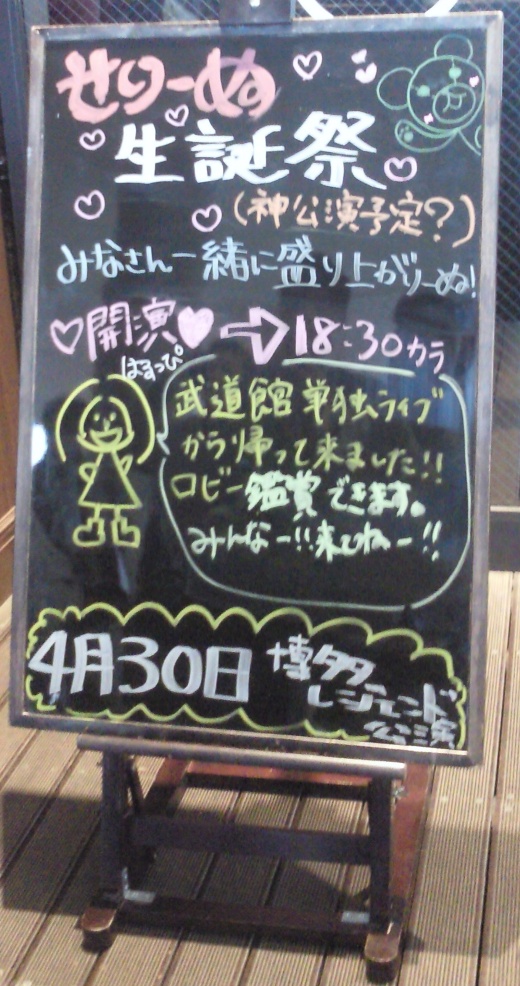 せりーぬ
生誕祭
(神公演予定?)
みなさん一緒に盛り上がりーぬ!
開演 18:30カラ
はるっぴ
武道館単独ライブ
から帰って来ました!!
ロビー鑑賞できます。
みんなー!!来てねー!!
4月30日 博多
レジェンド
公演